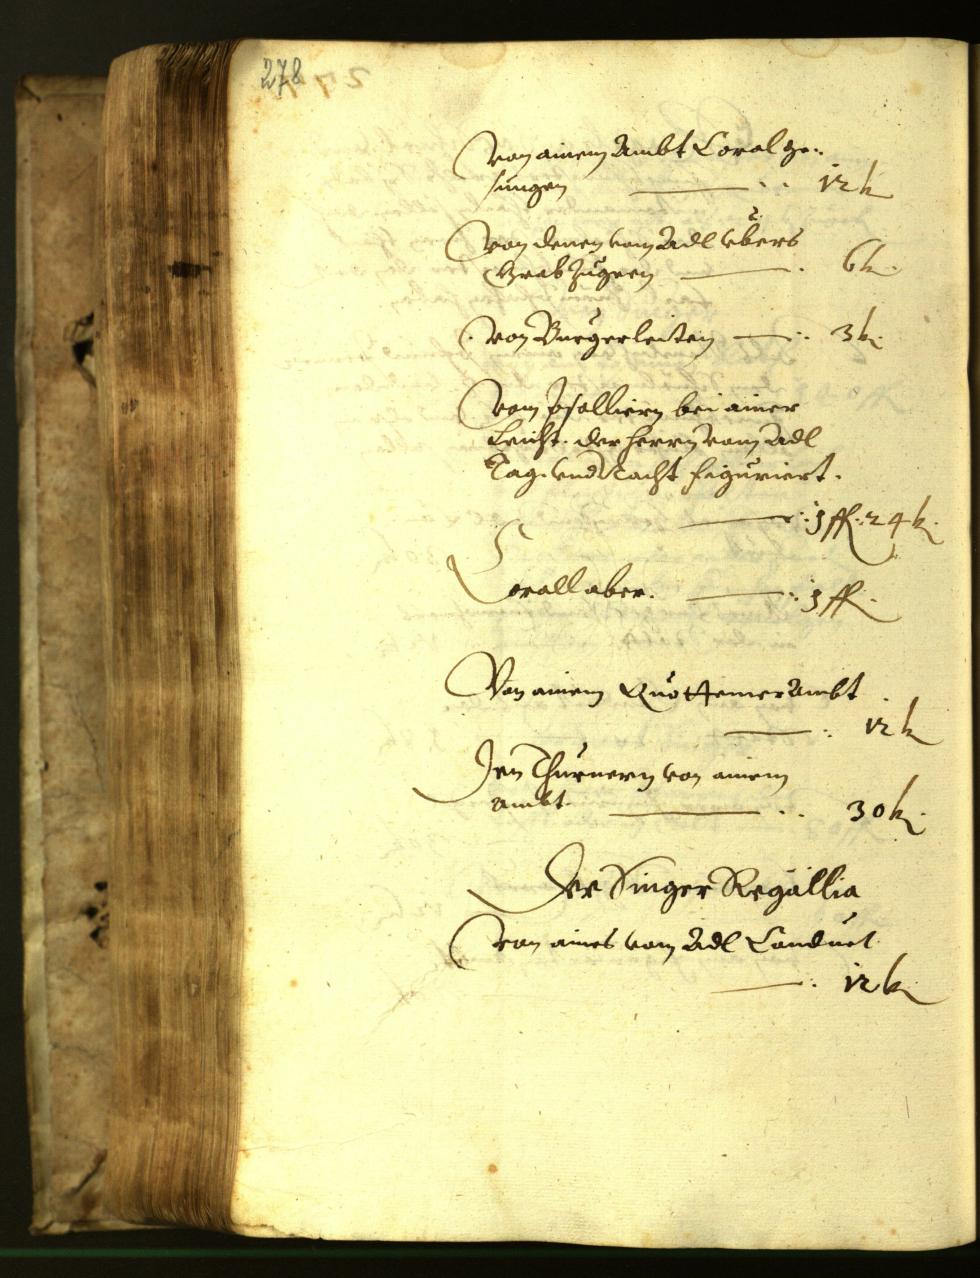 278
Von ainem Ambt Coral ge:
sungen — 12 k
Von denen vom Adl vbers
Grab Zugeen — 6 k.
Von Burgerleiten — 3 k.
Vom Psalliern bei ainer
Leicht. der Herrn vom Adl
Tag. vnd Nacht figuriert.
— 1 fl. 24 k.
Corall aber. — 1 fl.
Von ainem Quottemer Ambt
— 12 k
Den Thurnern von ainem
Ambt. — 30 k.
Der Singer Regallia
Von aines vom Adl Conduct
— 12 k